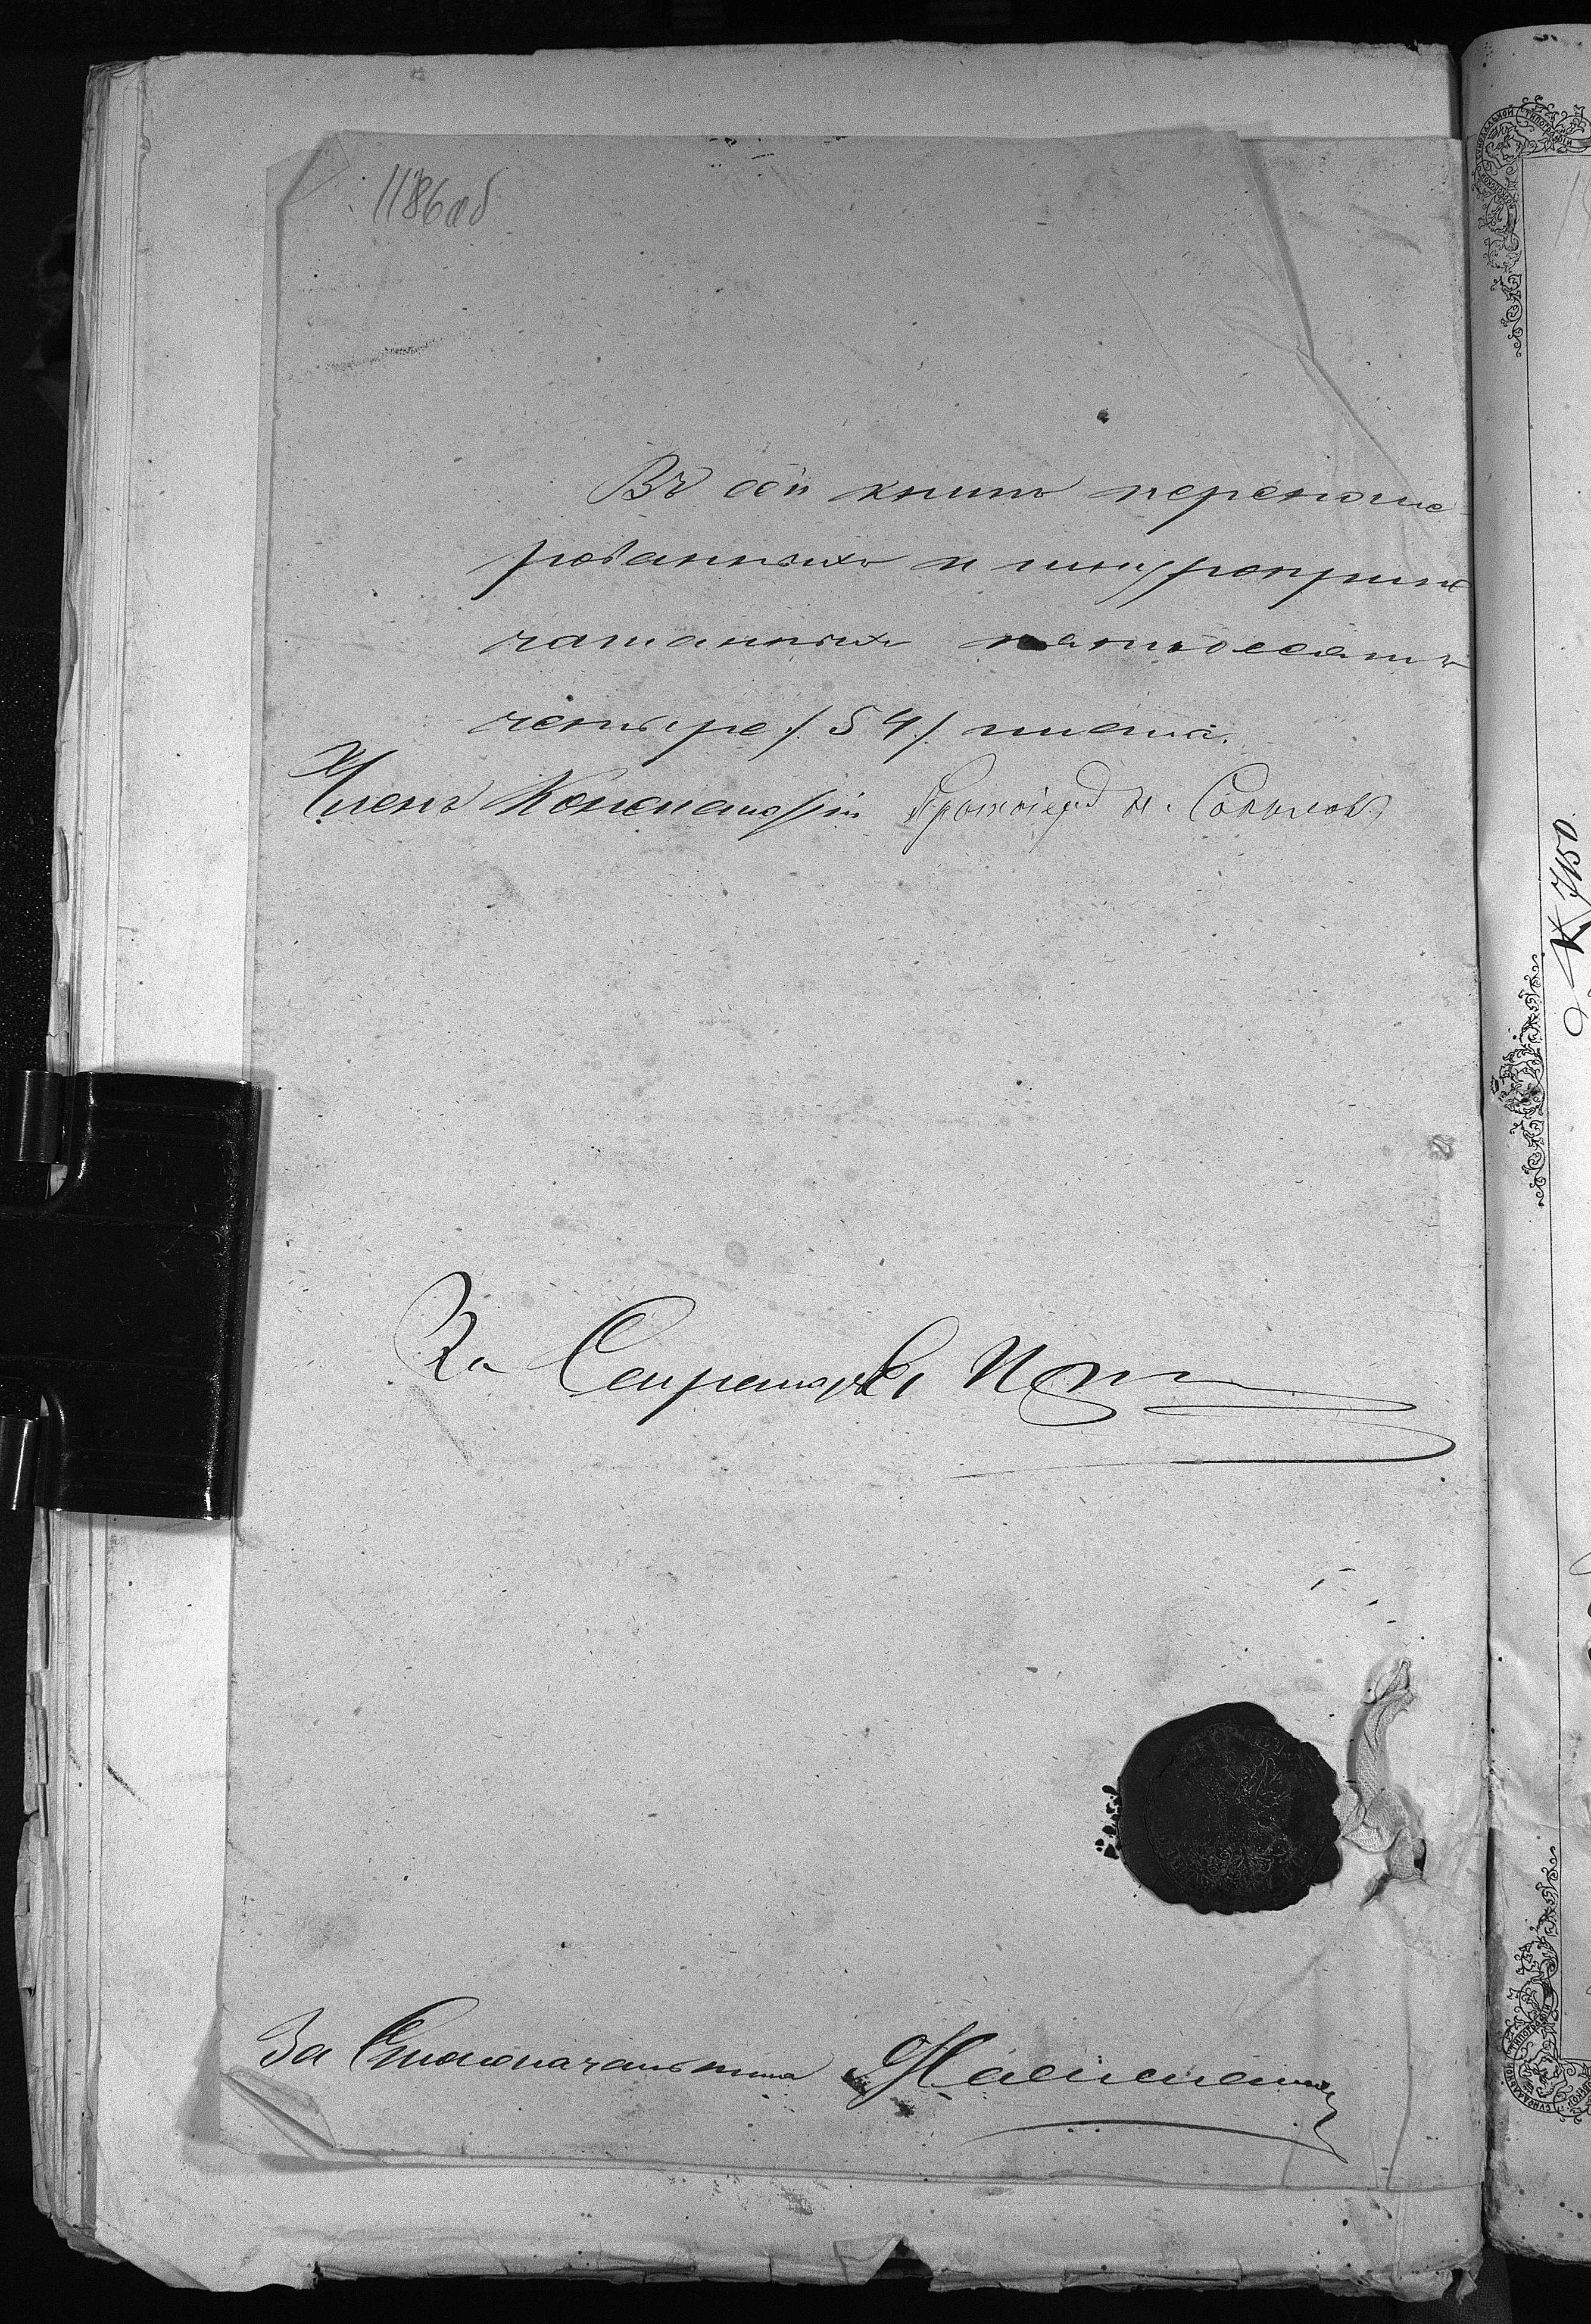 1186об
Въ сей книгѣ переноме-
рованныхъ и шнуроприпе-
чатанныхъ пятьдесятъ
четыре /54/ листа.
Членъ Консисторіи Протоіерей Н. Соколовъ
За Секретаря
За Столоначальника
№ 7150.